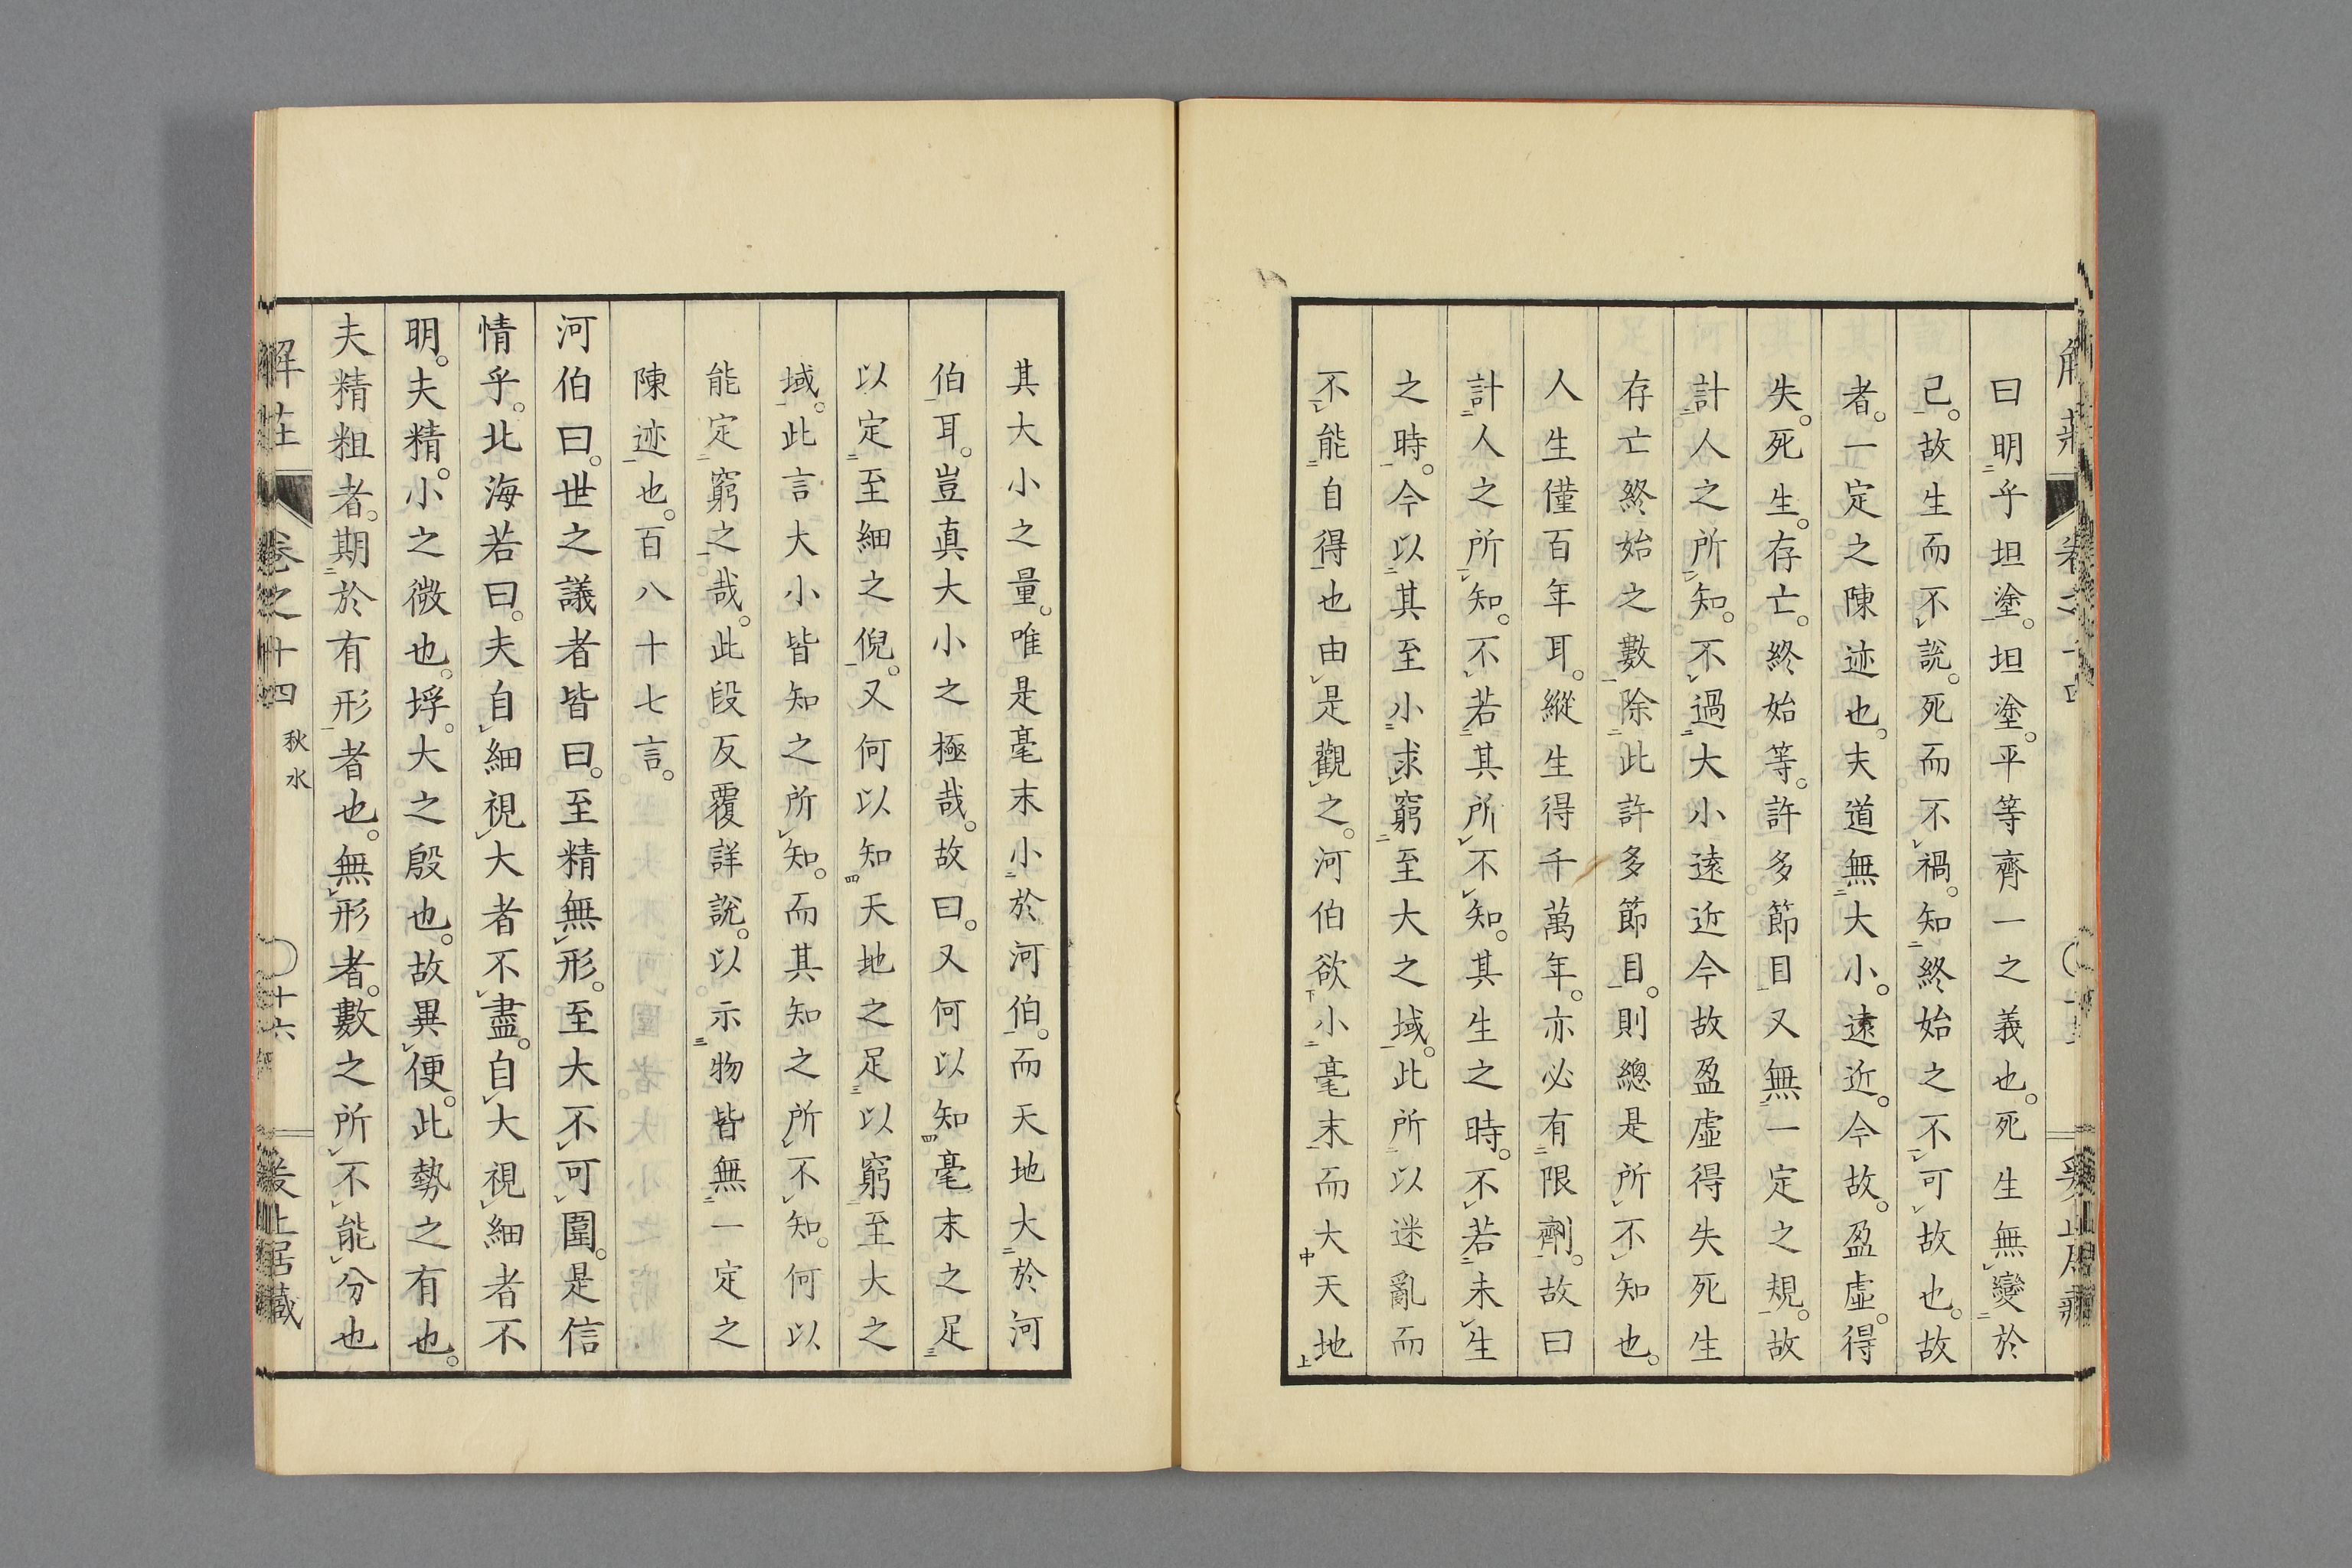 曰明乎坦塗。坦塗。平等齊一之義也。死生無變於
己。故生而不說。死而不禍。知終始之不可故也。故
者。一定之陳迹也。夫道無大小。遠近。今故。盈虛。得
失。死生。存亡。終始等。許多節目又無一定之規。故
計人之所知。不過大小遠近今故盈虛得失死生
存亡終始之數除此許多節目。則總是所不知也。
人生僅百年耳。縱生得千萬年。亦必有限劑。故曰
計人之所知。不若其所不知。其生之時。不若未生
之時。今以其至小求窮至大之域。此所以迷亂而
不能自得也由是觀之。河伯欲小毫末而大天地
其大小之量。唯是毫末小於河伯。而天地大於河
伯耳。豈真大小之極哉。故曰。又何以知毫末之足
以定至細之倪。又何以知天地之足以窮至大之
域。此言大小皆知之所知。而其知之所不知。何以
能定窮之哉。此段反覆詳說。以示物皆無一定之
陳迹也。百八十七言。
河伯曰。世之議者皆曰。至精無形。至大不可圍。是信
情乎。北海若曰。夫自細視大者不盡。自大視細者不
明。夫精。小之微也。垺。大之殷也。故異便。此勢之有也。
夫精粗者。期於有形者也。無形者。數之所不能分也
解莊 卷之十四 秋水 十六